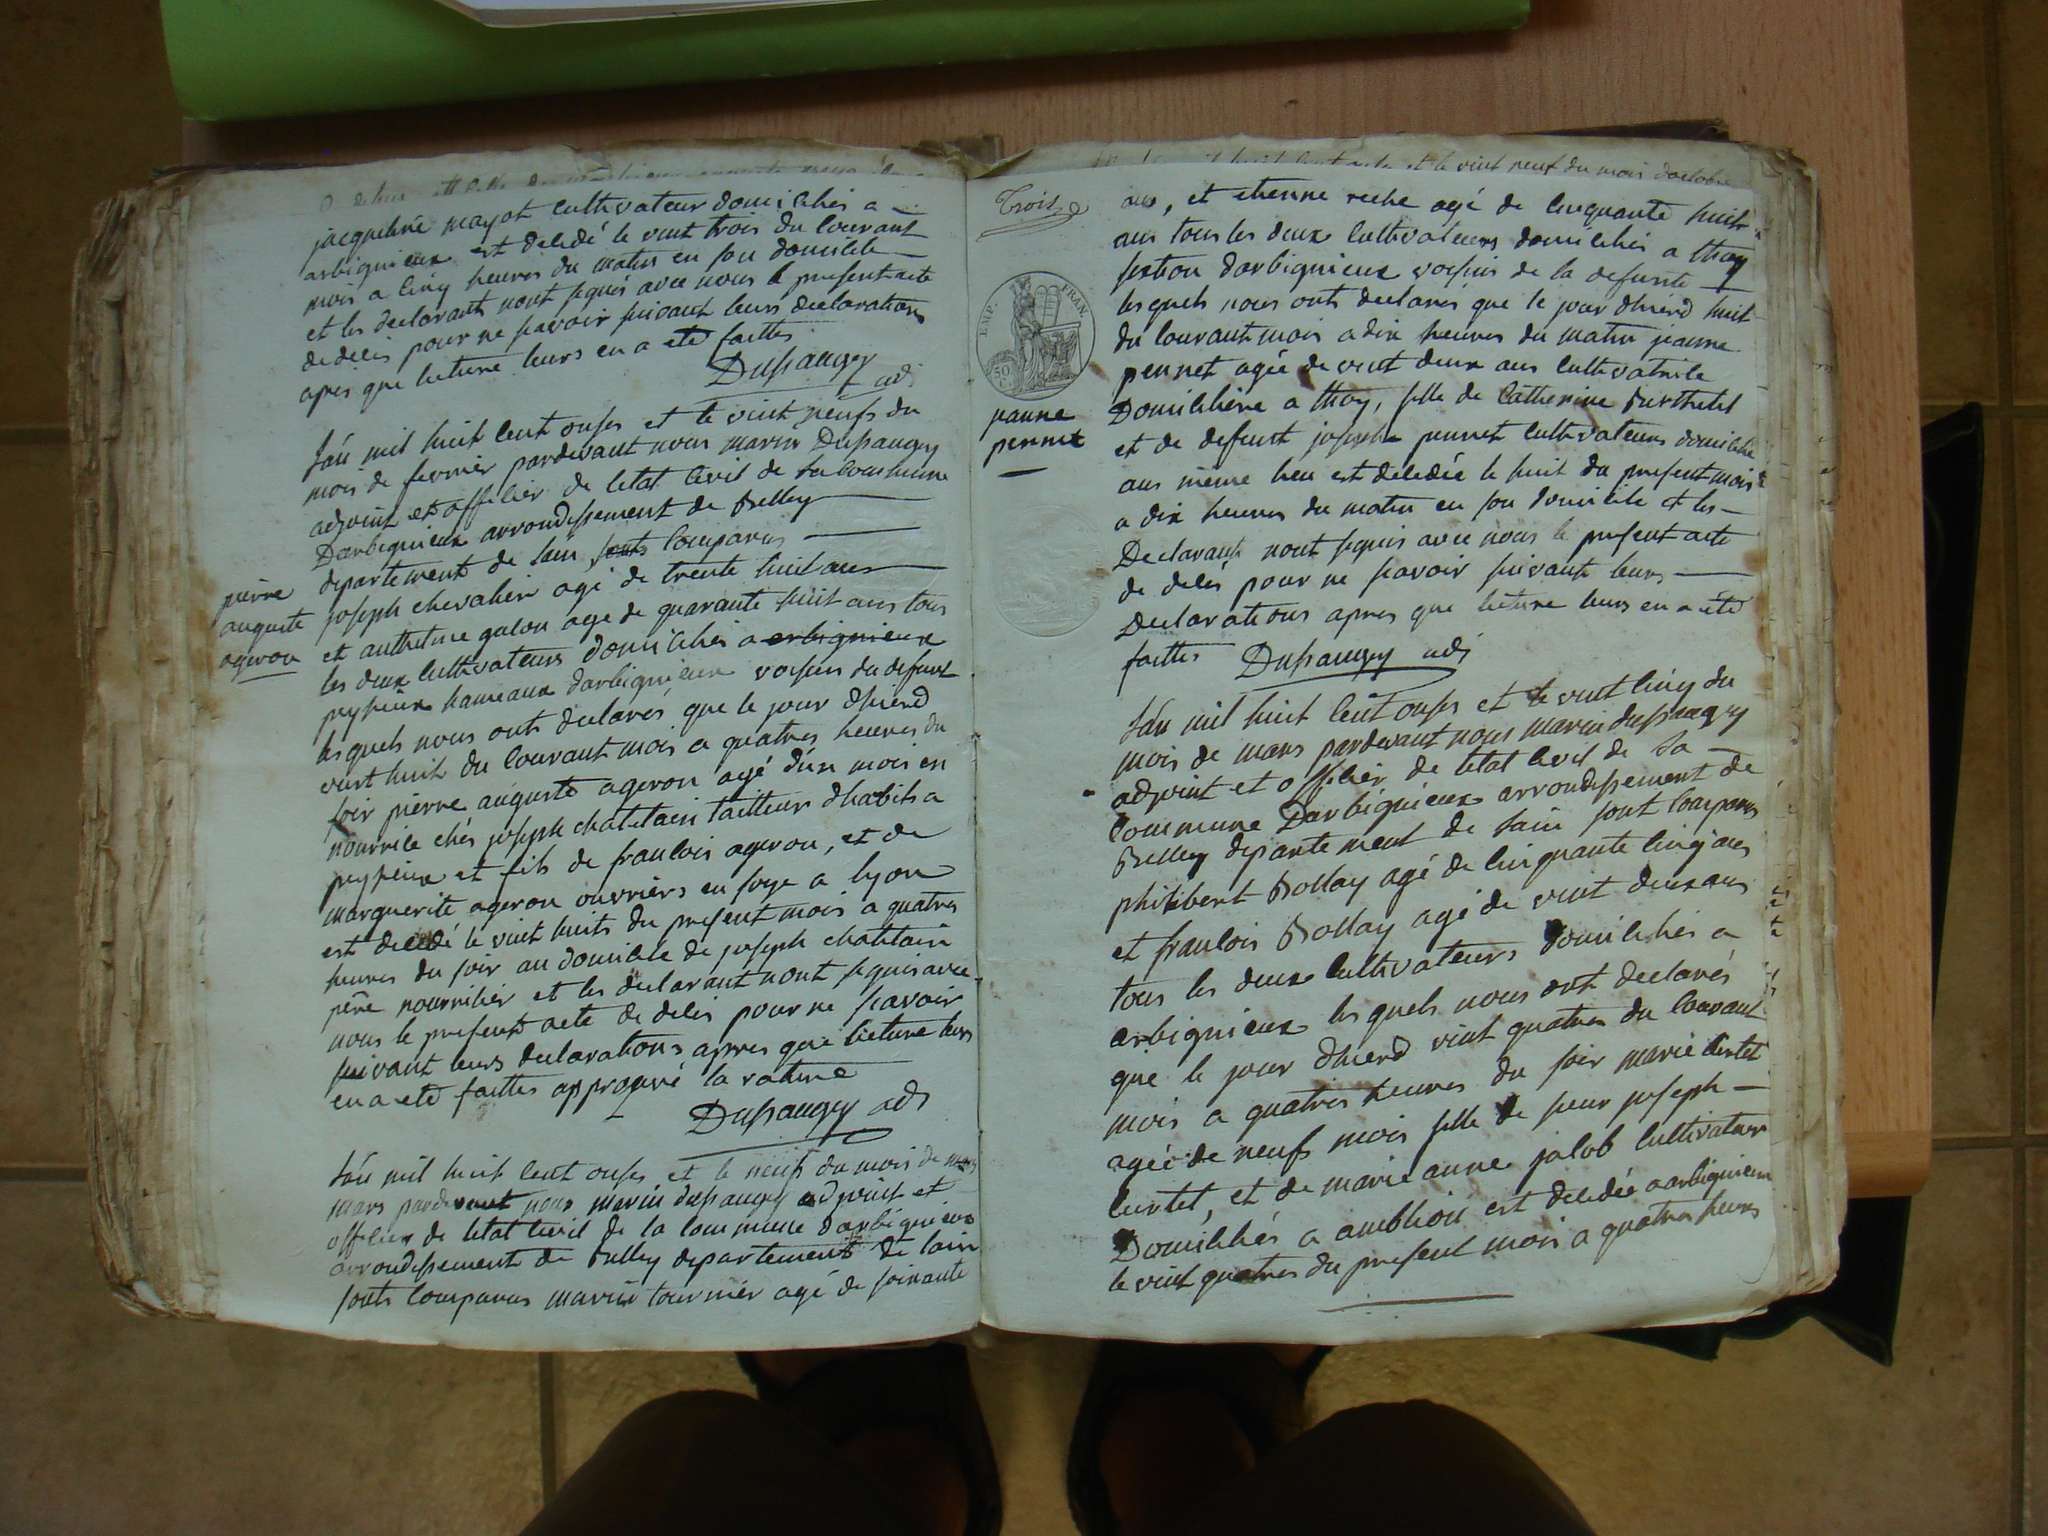 jacqueline mayot cultivateur domicilies a
arbignieux est decedé le vint trois du courant
mois a cinq heures du matin en son domicile
et les declarant nont signés avec nous le present acte
de deces pour ne scavoir suivant leurs declarations
apres que lecture leurs en a eté faittes
Dussaugey adj
Lan mil huit cent onze et le vint neufs du
mois de fevrier pardevant nous marin Dussaugey
adjoint et officier de letat civil de la commune
Darbignieux arrondissement de Belley
departement de lain sonts comparus
joseph chevalier agé de trente huit ans
et anthelme galon age de quarante huit ans tous
les deux cultivateurs domicilies a arbignieux
peyzieux hameaux darbignieux voisins du defunt
lesquels nous onts declarés que le jour dhierd
vint huit du courant mois a quatres heures du
soir pierre auguste ageron agé dun mois en
nourrice chés joseph chatelain tailleur dhabits a
peyzieux et fils de francois ageron, et de
marguerite ageron ouvriers en soye a lyon
est decedé le vint huits du present mois a quatres
heures du soir au domicile de joseph chatelain
pere nourricier et les declarant nont signés avec
nous le present acte de deces pour ne scavoir
suivant leurs declarations apres que lecture leurs
en a eté faittes approuvé la rature
Dussaugey adj
pierre
auguste
ageron
Lan mil huit cent onze et le neufs du mois de mars
mars pardevant nous marin dussaugey adjoint et
officier de letat civil de la commune darbignieux
arrondissement de Belley departement de lain
sonts comparus marin tournier agé de soixante
et le vint neuf du mois doctobre
Trois
EMP. FRAN.
50 C.
jeanne
pennet
ans, et etienne reche agé de cinquante huit
ans tous les deux cultivateurs domicilies a thoy
section darbignieux voisins de la defunte
lesquels nous onts declarés que le jour dhierd huit
du courant mois a dix heures du matin jeanne
pennet agée de vint deux ans cultivatrice
Domiciliere a thoy, fille de Catherine Burthelet
et de defunt joseph pennet cultivateurs domicilie
aus même lieu est decedée le huit du present mois
a dix heures du matin en son domicile et les
Declarants nont signés avec nous le present acte
de deces pour ne scavoir suivant leurs
Declarations apres que lecture leurs en a eté
faittes Dussaugey adj
Lan mil huit cent onze et le vint cinq du
mois de mars pardevant nous marin dussaugey
adjoint et officier de letat civil de la
commune Darbignieux arrondissement de
Belley departement de lain sont comparus
philibert Bollay agé de cinquante cinq ans
et francois Bollay agé de vint deux ans
tous les deux cultivateurs domicilies a
arbignieux lesquels nous ont declarés
que le jour dhierd vint quatres du courant
mois a quatres heures du soir marie curtet
agée de neufs mois fille de sieur joseph
curtet, et de marie anne jacob cultivateur
Domiciliés a ambhion est decedée a arbignieux
le vint quatres du present mois a quatres heures